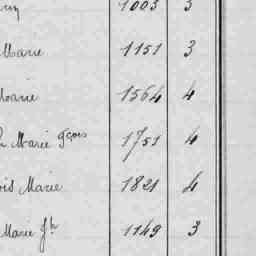 1003 3
Marie 1151 3
Marie 1564 4
Marie gçois 1751 4
ois Marie 1821 4
Marie Jh 1149 3